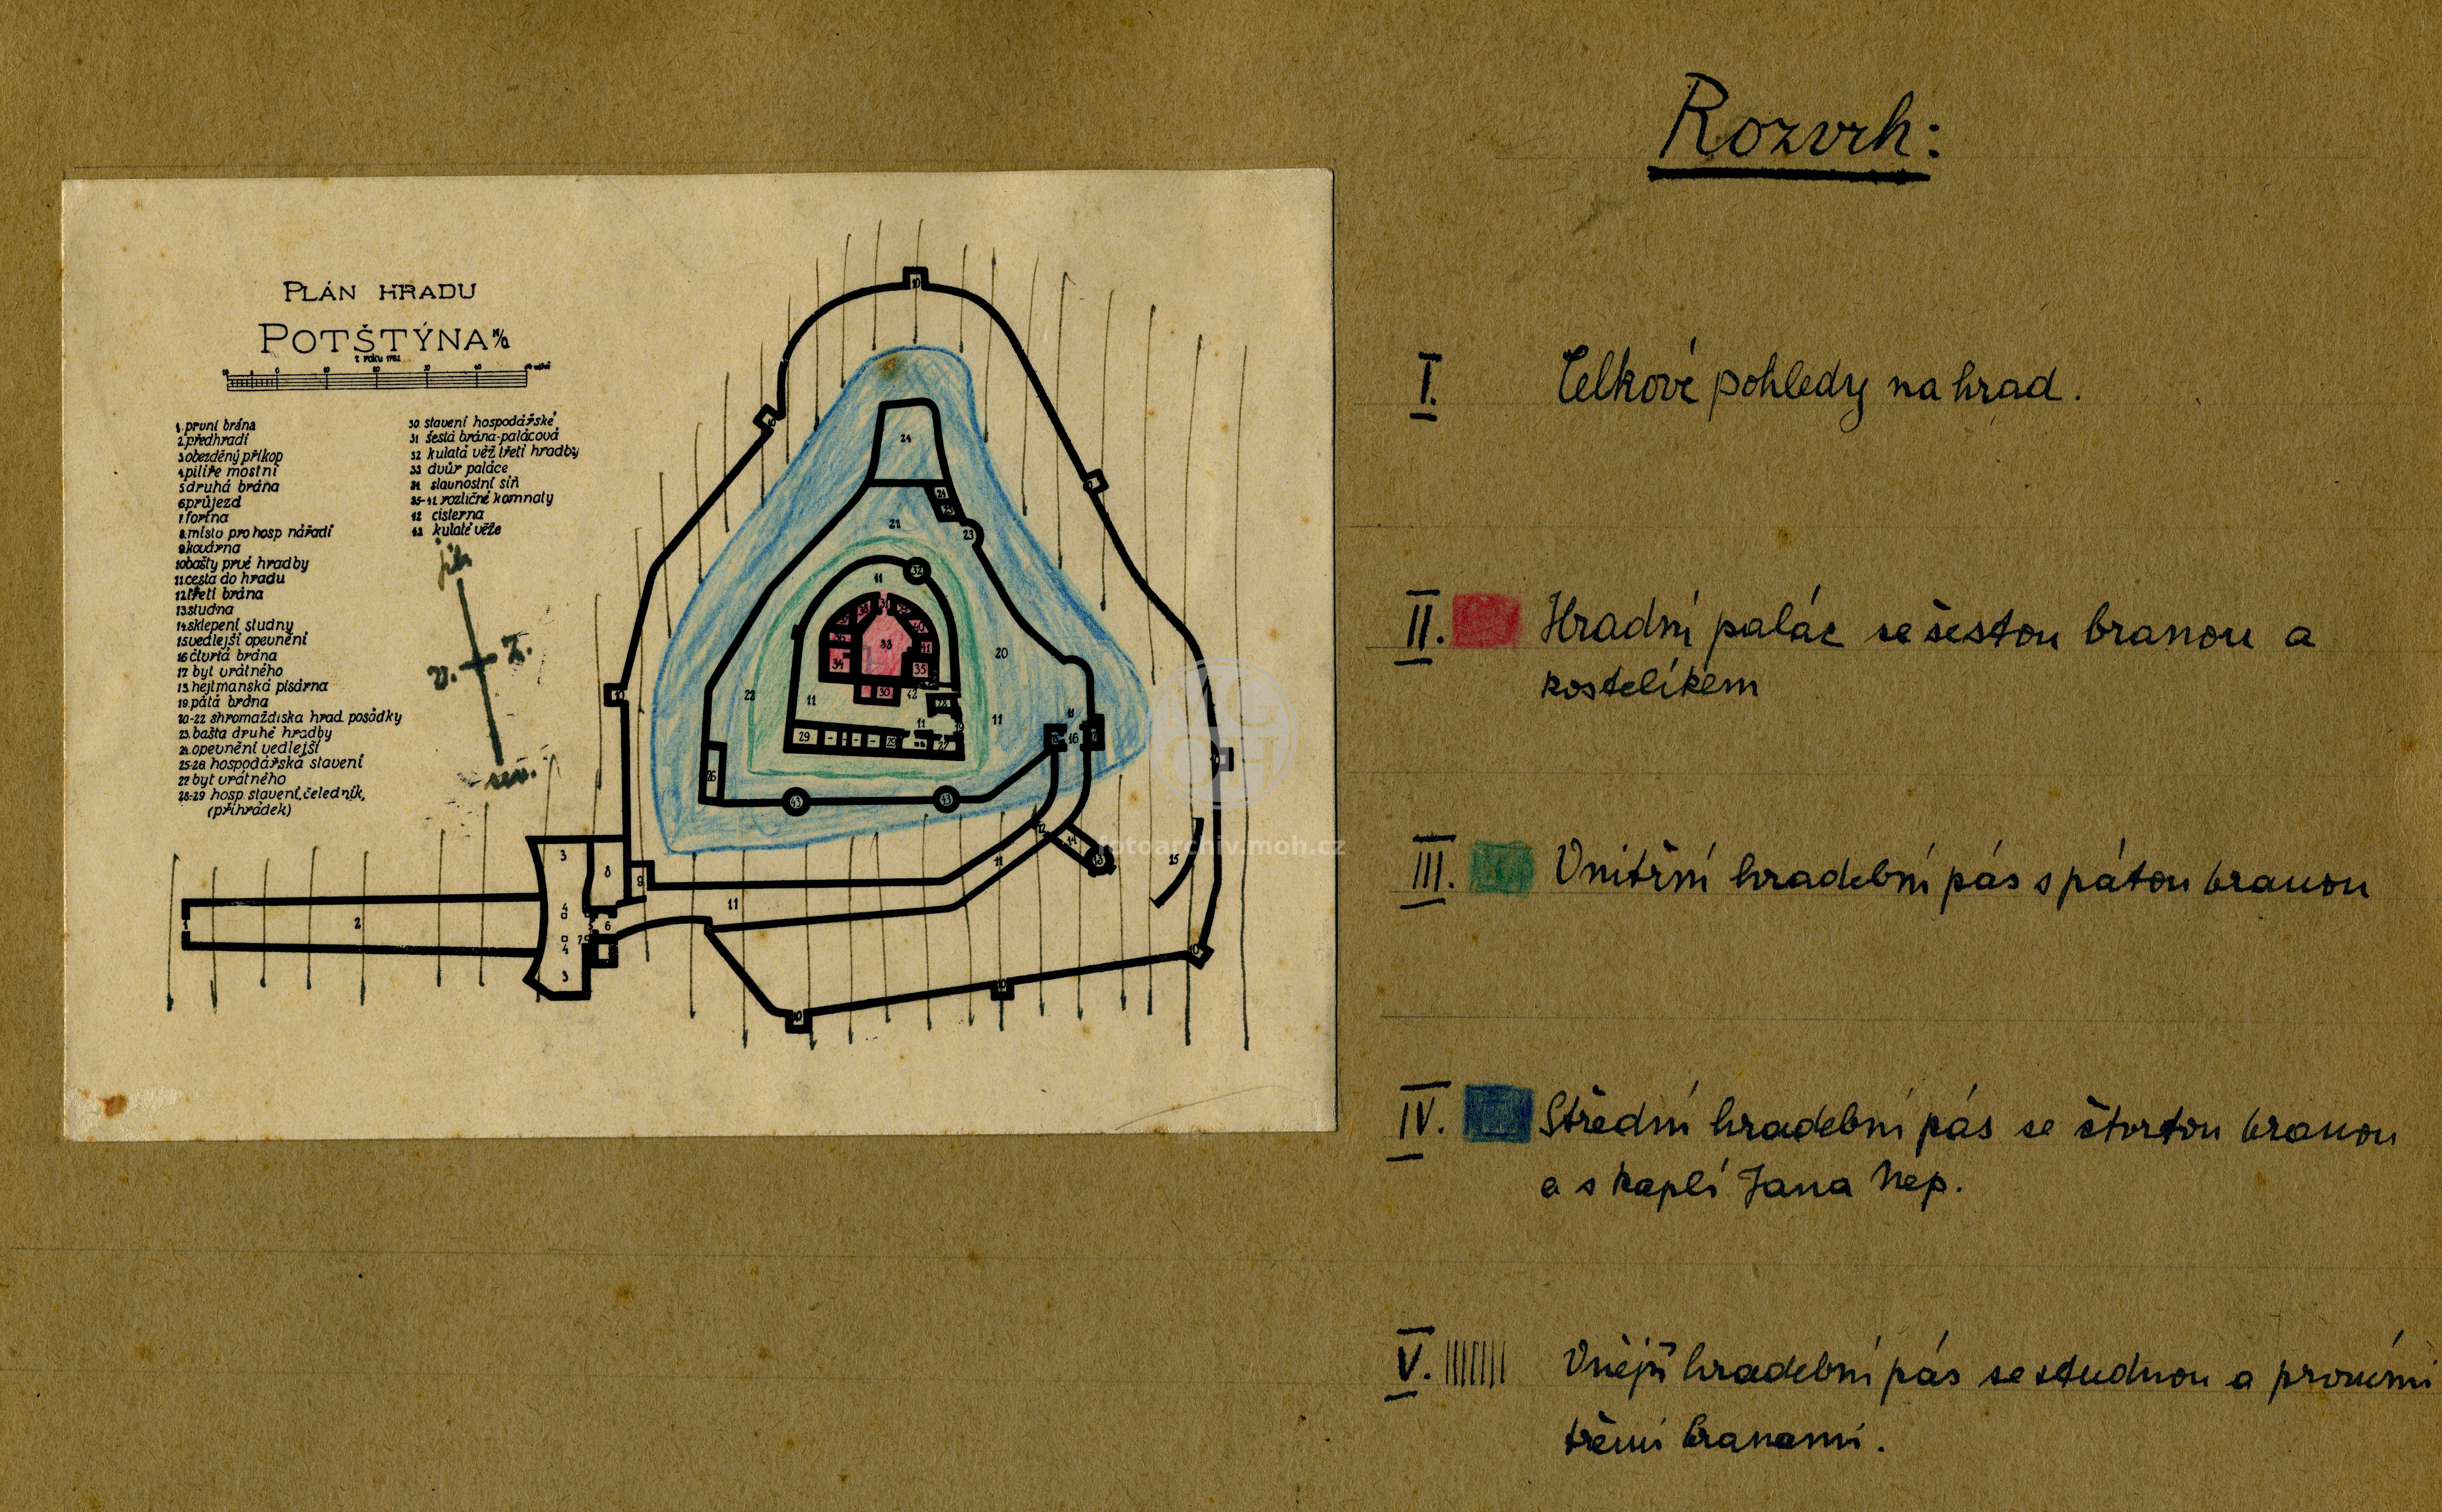 Rozvrh:
PLÁN HRADU
POTŠTÝNA N/O
Z ROKU 1782
1. první brána
2 předhradí
3 obezděný příkop
4 pilíře mostní
5 druhá brána
6 průjezd
7 fortna
8. místo pro hosp nářadí
9 kovárna
10 bašty prvé hradby
11. cesta do hradu
12 třetí brána
13 studna
14 sklepení studny
15 vedlejší opevnění
16 čtvrtá brána
17 byt vrátného
18 hejtmanská písárna
19. pátá brána
20-22 shromaždiska hrad. posádky
23. bašta druhé hradby
24. opevnění vedlejší
25-26 hospodářská stavení
27 byt vrátného
28-29 hosp. stavení, čeledník,
(přihrádek)
30 stavení hospodářské
31 šestá brána-palácová
32 kulatá věž třetí hradby
33 dvůr paláce
34 slavnostní síň
35-41 rozličné komnaty
42 cisterna
43 kulaté věže
jih
v. z.
sev.
fotoarchiv.moh.cz
I. Celkové pohledy na hrad.
II. Hradní palác se šestou branou a
kostelíkem
III. Vnitřní hradební pás s pátou branou
IV. Střední hradební pás se čtvrtou branou
a s kaplí Jana Nep.
V. Vnější hradební pás se studnou a prvními
třemi branami.